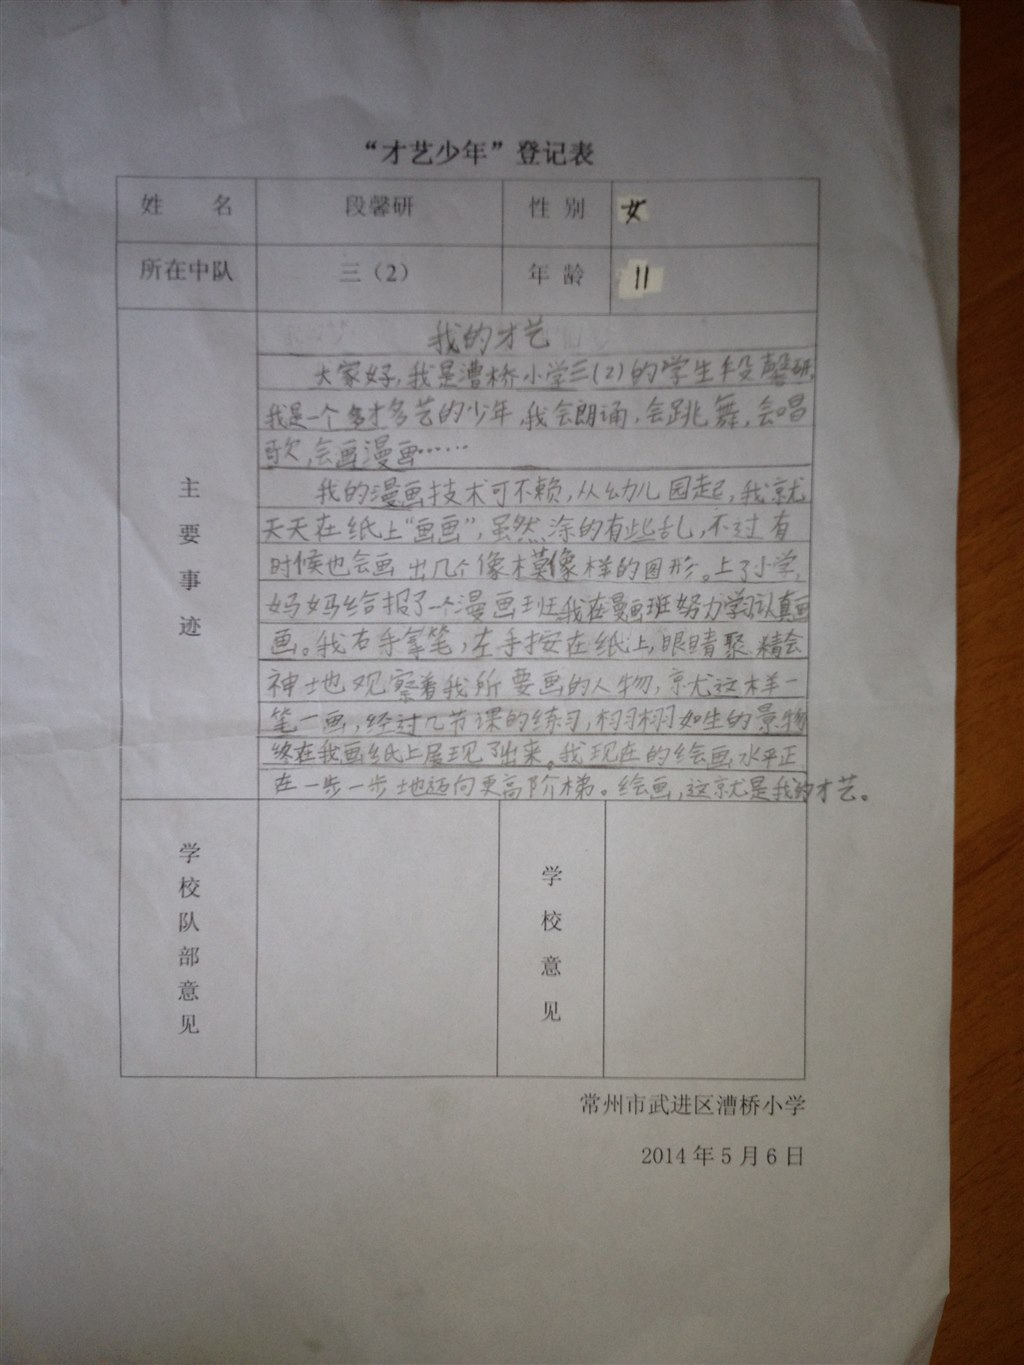 “才艺少年”登记表
姓 名 段馨研 性 别 女
所在中队 三（2） 年 龄 11
主要事迹
我的才艺
大家好，我是漕桥小学三(2)的学生段馨研，
我是一个多才多艺的少年，我会朗诵，会跳舞，会唱
歌，会画漫画……
我的漫画技术可不赖，从幼儿园起，我就
天天在纸上“画画”，虽然涂的有些乱，不过有
时候也会画出几个像模像样的图形。上了小学，
妈妈给报了一个漫画班，我在漫画班努力学习认真画
画。我右手拿笔，左手按在纸上，眼睛聚精会
神地观察着我所要画的人物，就这样一
笔一画，经过几节课的练习，栩栩如生的景物
终在我画纸上展现了出来。我现在的绘画水平正
在一步一步地迈向更高阶梯。绘画，这就是我的才艺。
学校队部意见
学校意见
常州市武进区漕桥小学
2014年5月6日